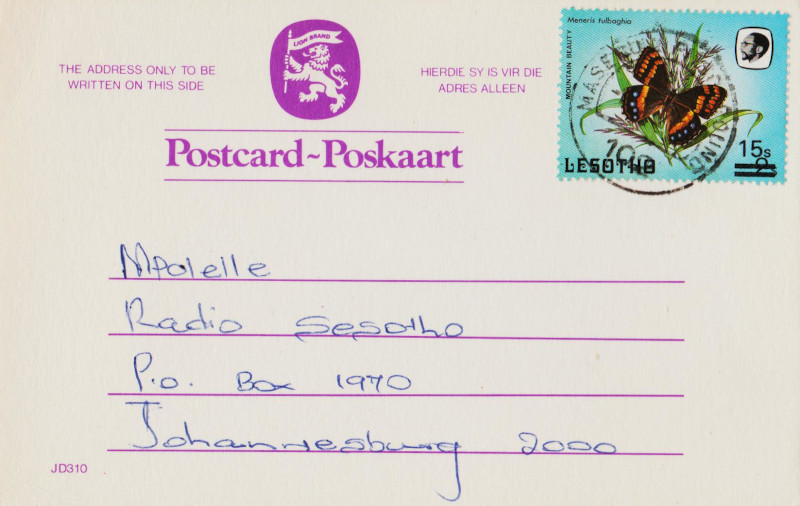 LION BRAND
THE ADDRESS ONLY TO BE
WRITTEN ON THIS SIDE
HIERDIE SY IS VIR DIE
ADRES ALLEEN
Postcard~Poskaart
Meneris tulbaghia
MOUNTAIN BEAUTY
MASERU
10
LESOTHO
15s
2s
Mpolelle
Radio Sesotho
P.O. Box 1970
Johannesburg 2000
JD310